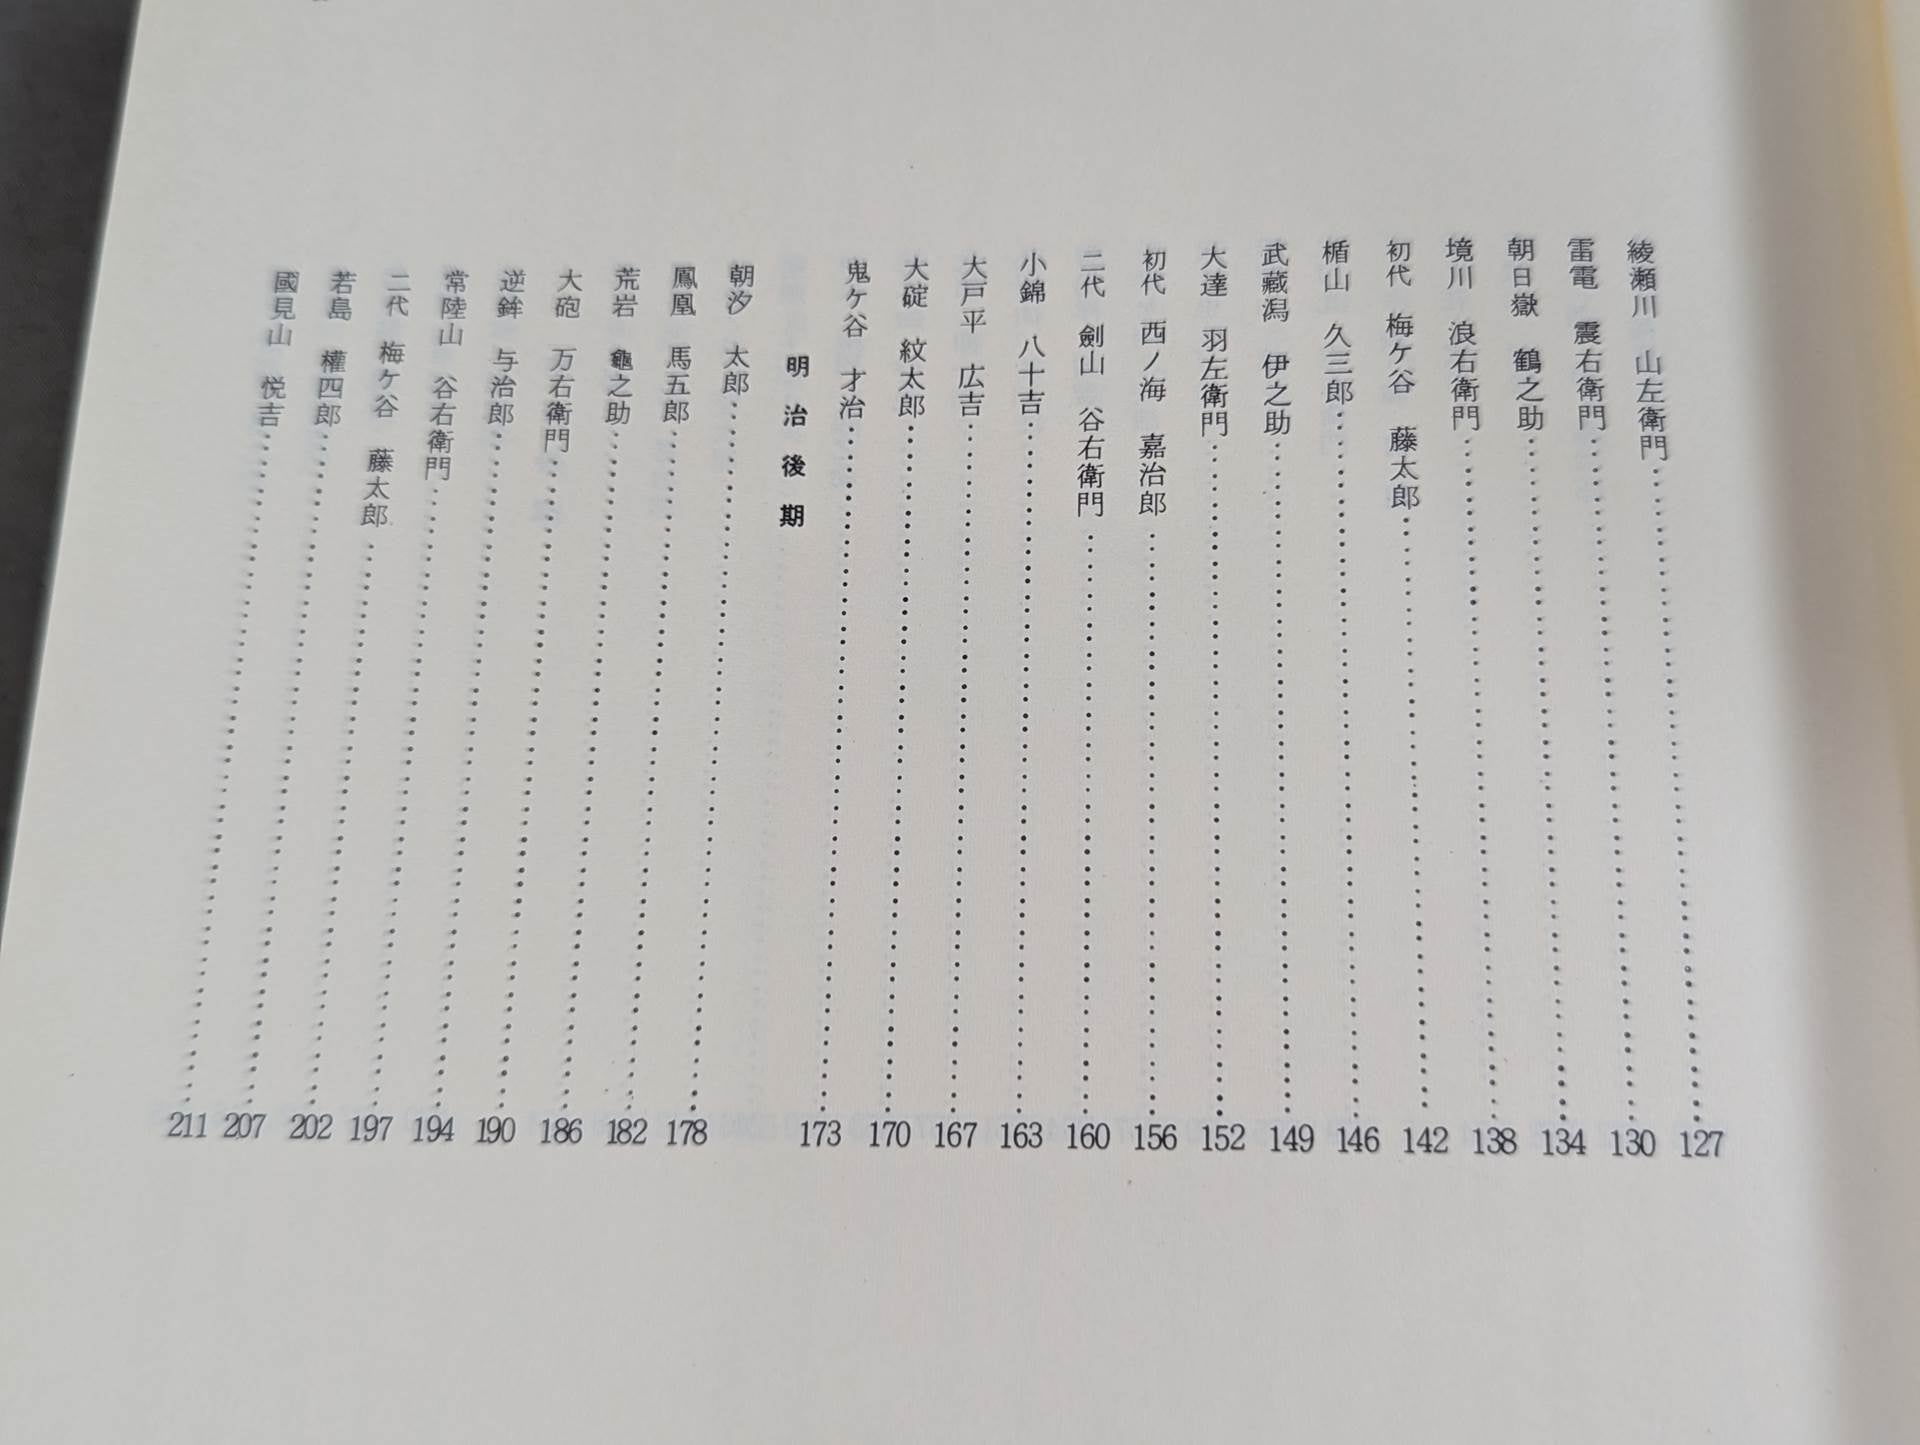 綾瀬川 山左衛門 127
雷電 震右衛門 130
朝日嶽 鶴之助 134
境川 浪右衛門 138
初代 梅ケ谷 藤太郎 142
楯山 久三郎 146
武藏潟 伊之助 149
大達 羽左衛門 152
初代 西ノ海 嘉治郎 156
二代 劍山 谷右衛門 160
小錦 八十吉 163
大戸平 広吉 167
大碇 紋太郎 170
鬼ケ谷 才治 173
明治後期
朝汐 太郎 178
鳳凰 馬五郎 182
荒岩 龜之助 186
大砲 万右衛門 190
逆鉾 与治郎 194
常陸山 谷右衛門 197
二代 梅ケ谷 藤太郎 202
若島 權四郎 207
國見山 悦吉 211